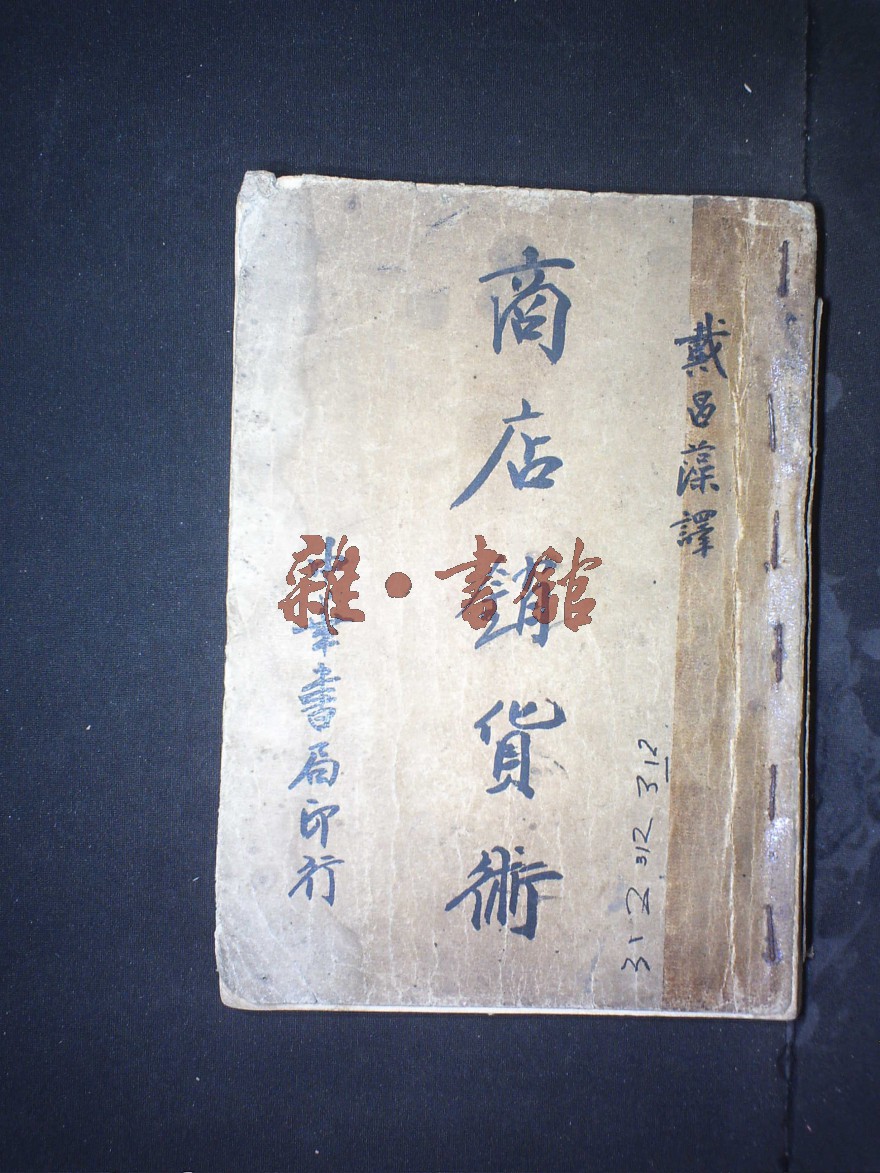 戴昌藻譯
商店銷貨術
中華書局印行
雜·書館